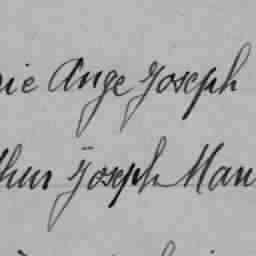 rie Ange Joseph
thur Joseph Mau